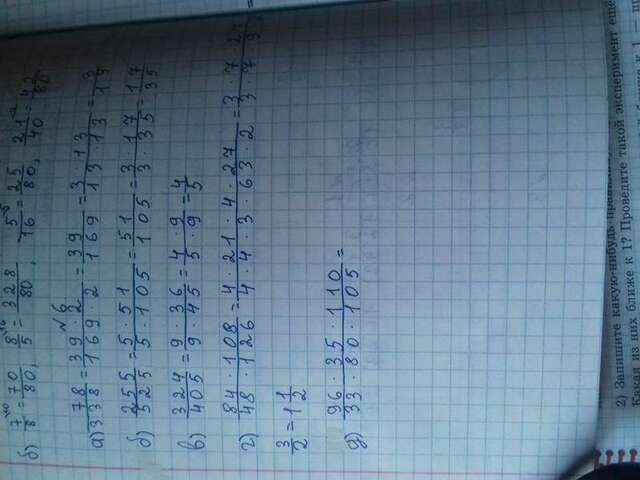 б) 7/8 = 70/80, 8/5 = 328/80, 5/16 = 25/80, 21/40 = 42/80
№6
а) 78/338 = 39 · 2/169 · 2 = 39/169 = 3 · 13/13 · 13 = 3/13
б) 255/525 = 5 · 51/5 · 105 = 51/105 = 3 · 17/3 · 35 = 17/35
в) 324/405 = 9 · 36/9 · 45 = 4 · 9/5 · 9 = 4/5
г) 84 · 108/48 · 126 = 4 · 21 · 4 · 27/4 · 4 · 3 · 63 · 2 = 3 · 7 · 27/3 · 7 · 9 =
3/2 = 1 1/2
д) 96 · 35 · 110/33 · 80 · 105 =
2) Запишите какую-нибудь
Какая из них ближе к 1? Проведите такой эксперимент ещё